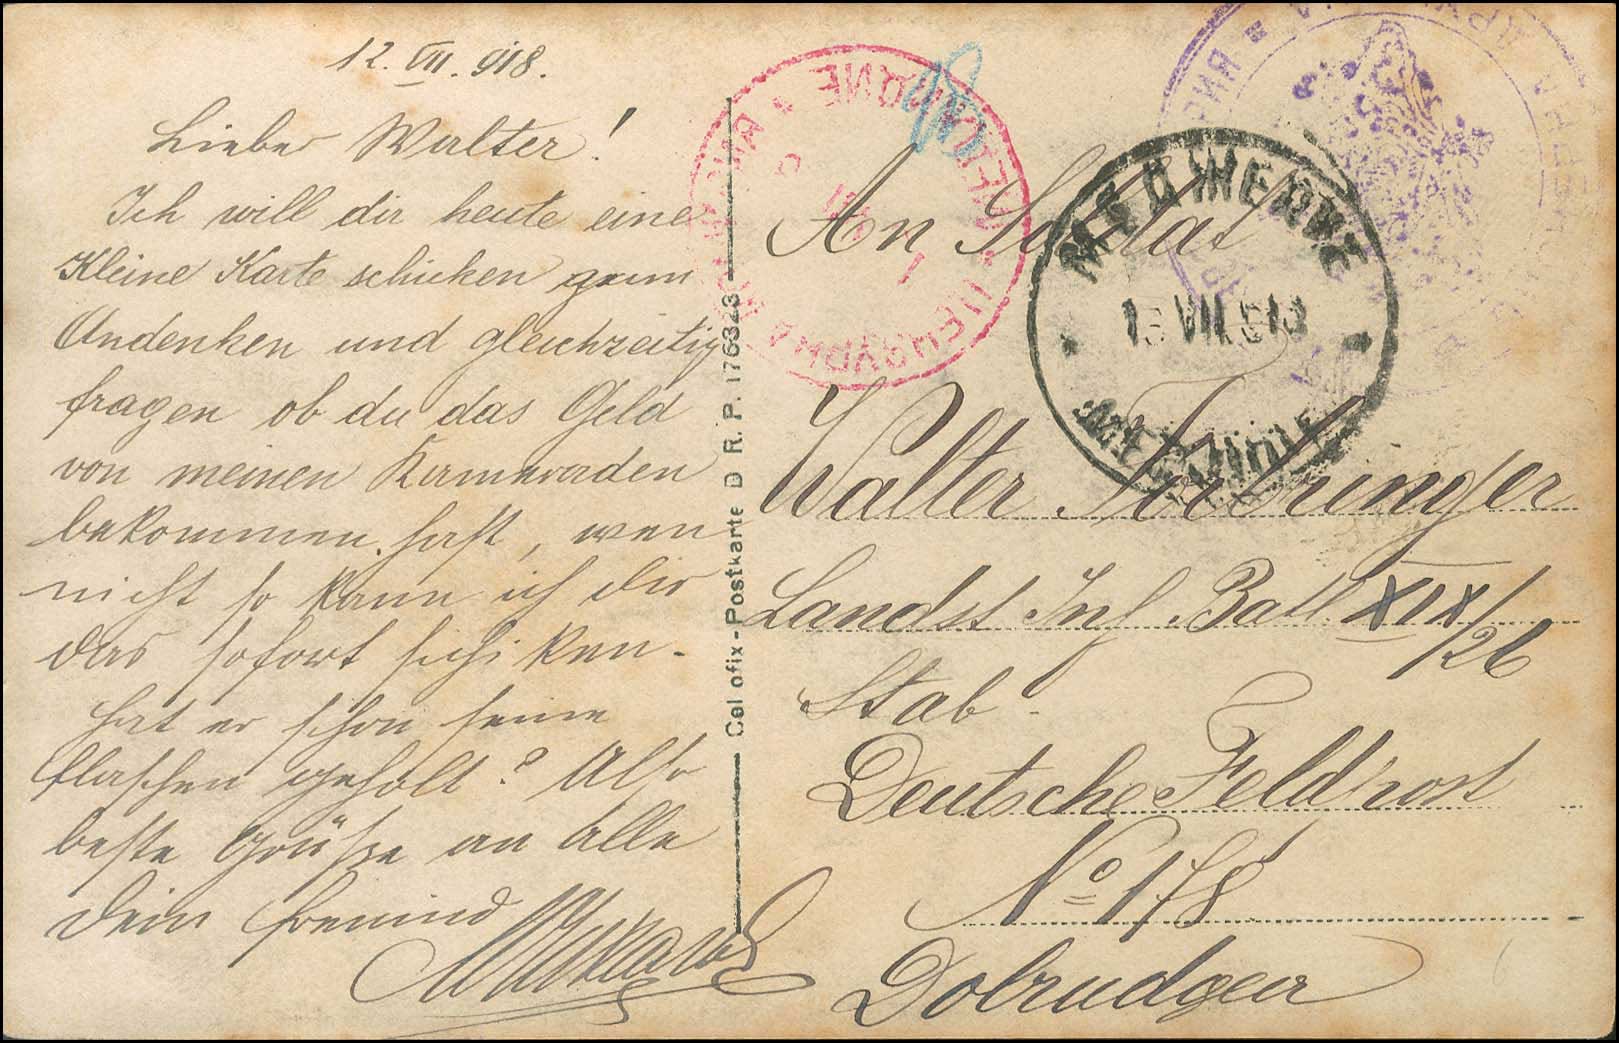 12. VII. 918.
Lieber Walter!
Ich will dir heute eine
Kleine Karte schicken zum
Andenken und gleichzeitig
fragen ob du das Geld
von meinen Kammeraden
bekommen hast, wen
nicht so kann ich dir
das sofort schiken.
hat er schon seine
flaschen geholt? Also
beste Grüsse an alle
Dein freund
Cel ofix-Postkarte D R. P. 176323
МЕДЖЕДИЕ
13 VII 918
MEDJIDIE
An Soldat
Walter
Landst Inf. Batl. XIX/26
Stab.
Deutsche Feldpost
No 178
Dobrudgea